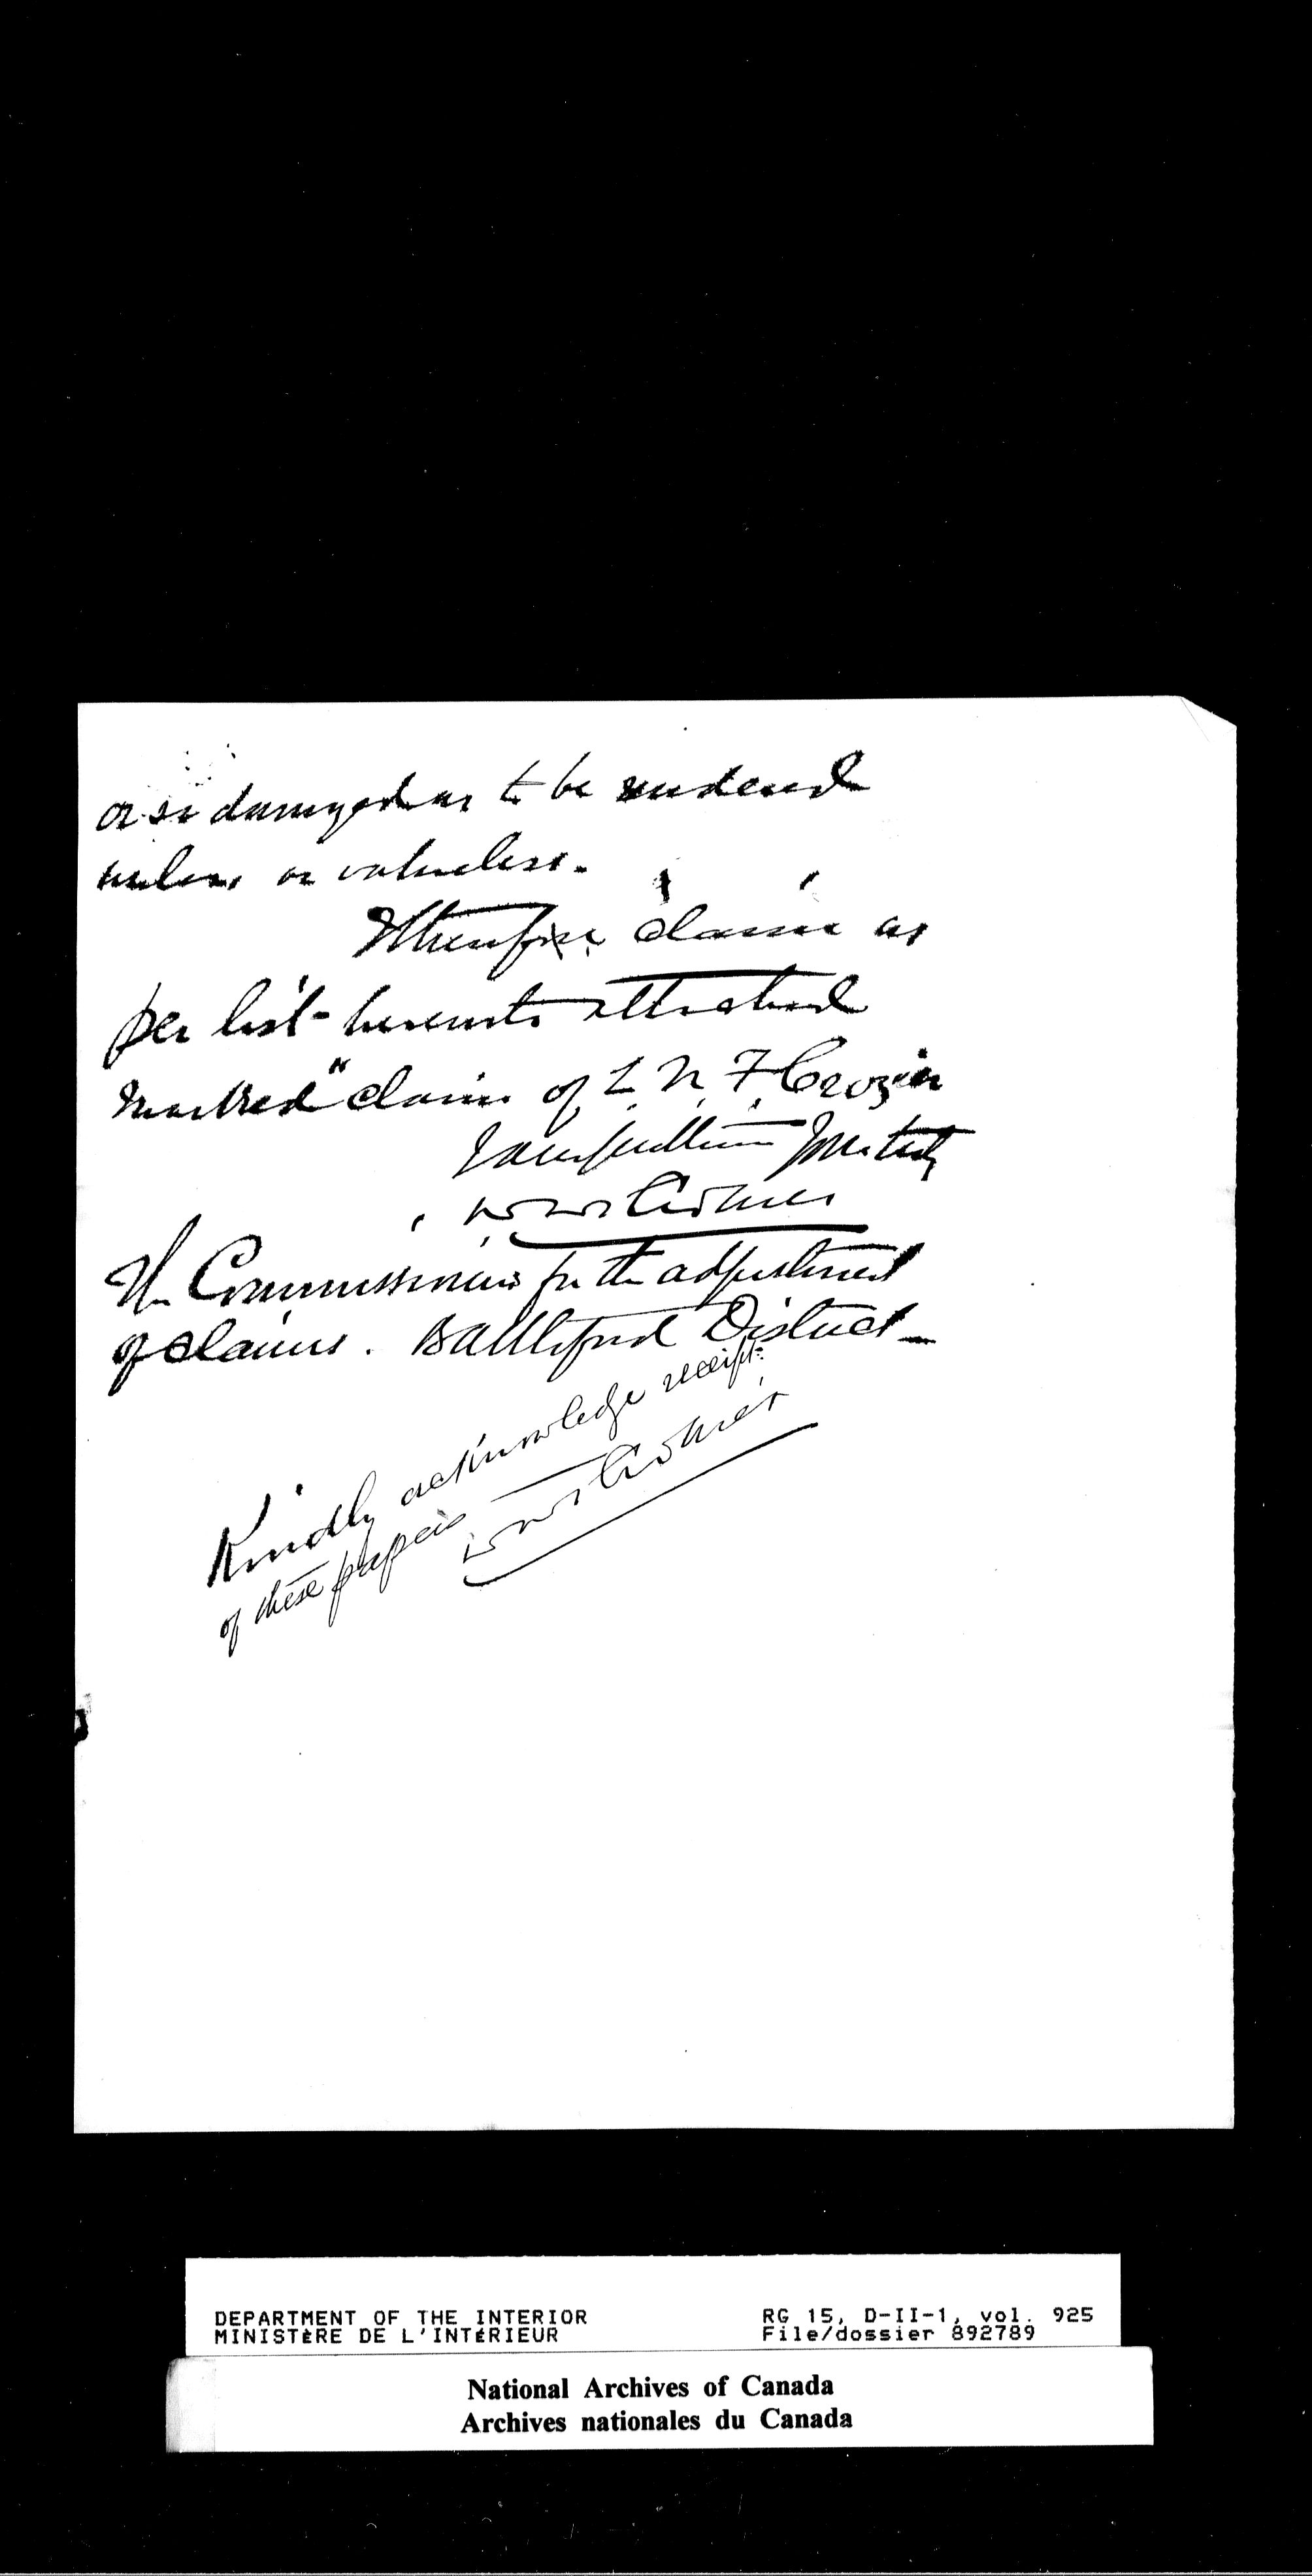 or so damaged as to be rendered
useless or valueless.
I therefore claim as
per list hereunto attached
marked "claim of L N F Crozier
Yours faithfully
The Commissioners for the adjustment
of claims. Battleford District
Kindly acknowledge receipt
of these papers
DEPARTMENT OF THE INTERIOR RG 15, D-II-1, vol. 925
MINISTÈRE DE L'INTÉRIEUR File/dossier 892789
National Archives of Canada
Archives nationales du Canada